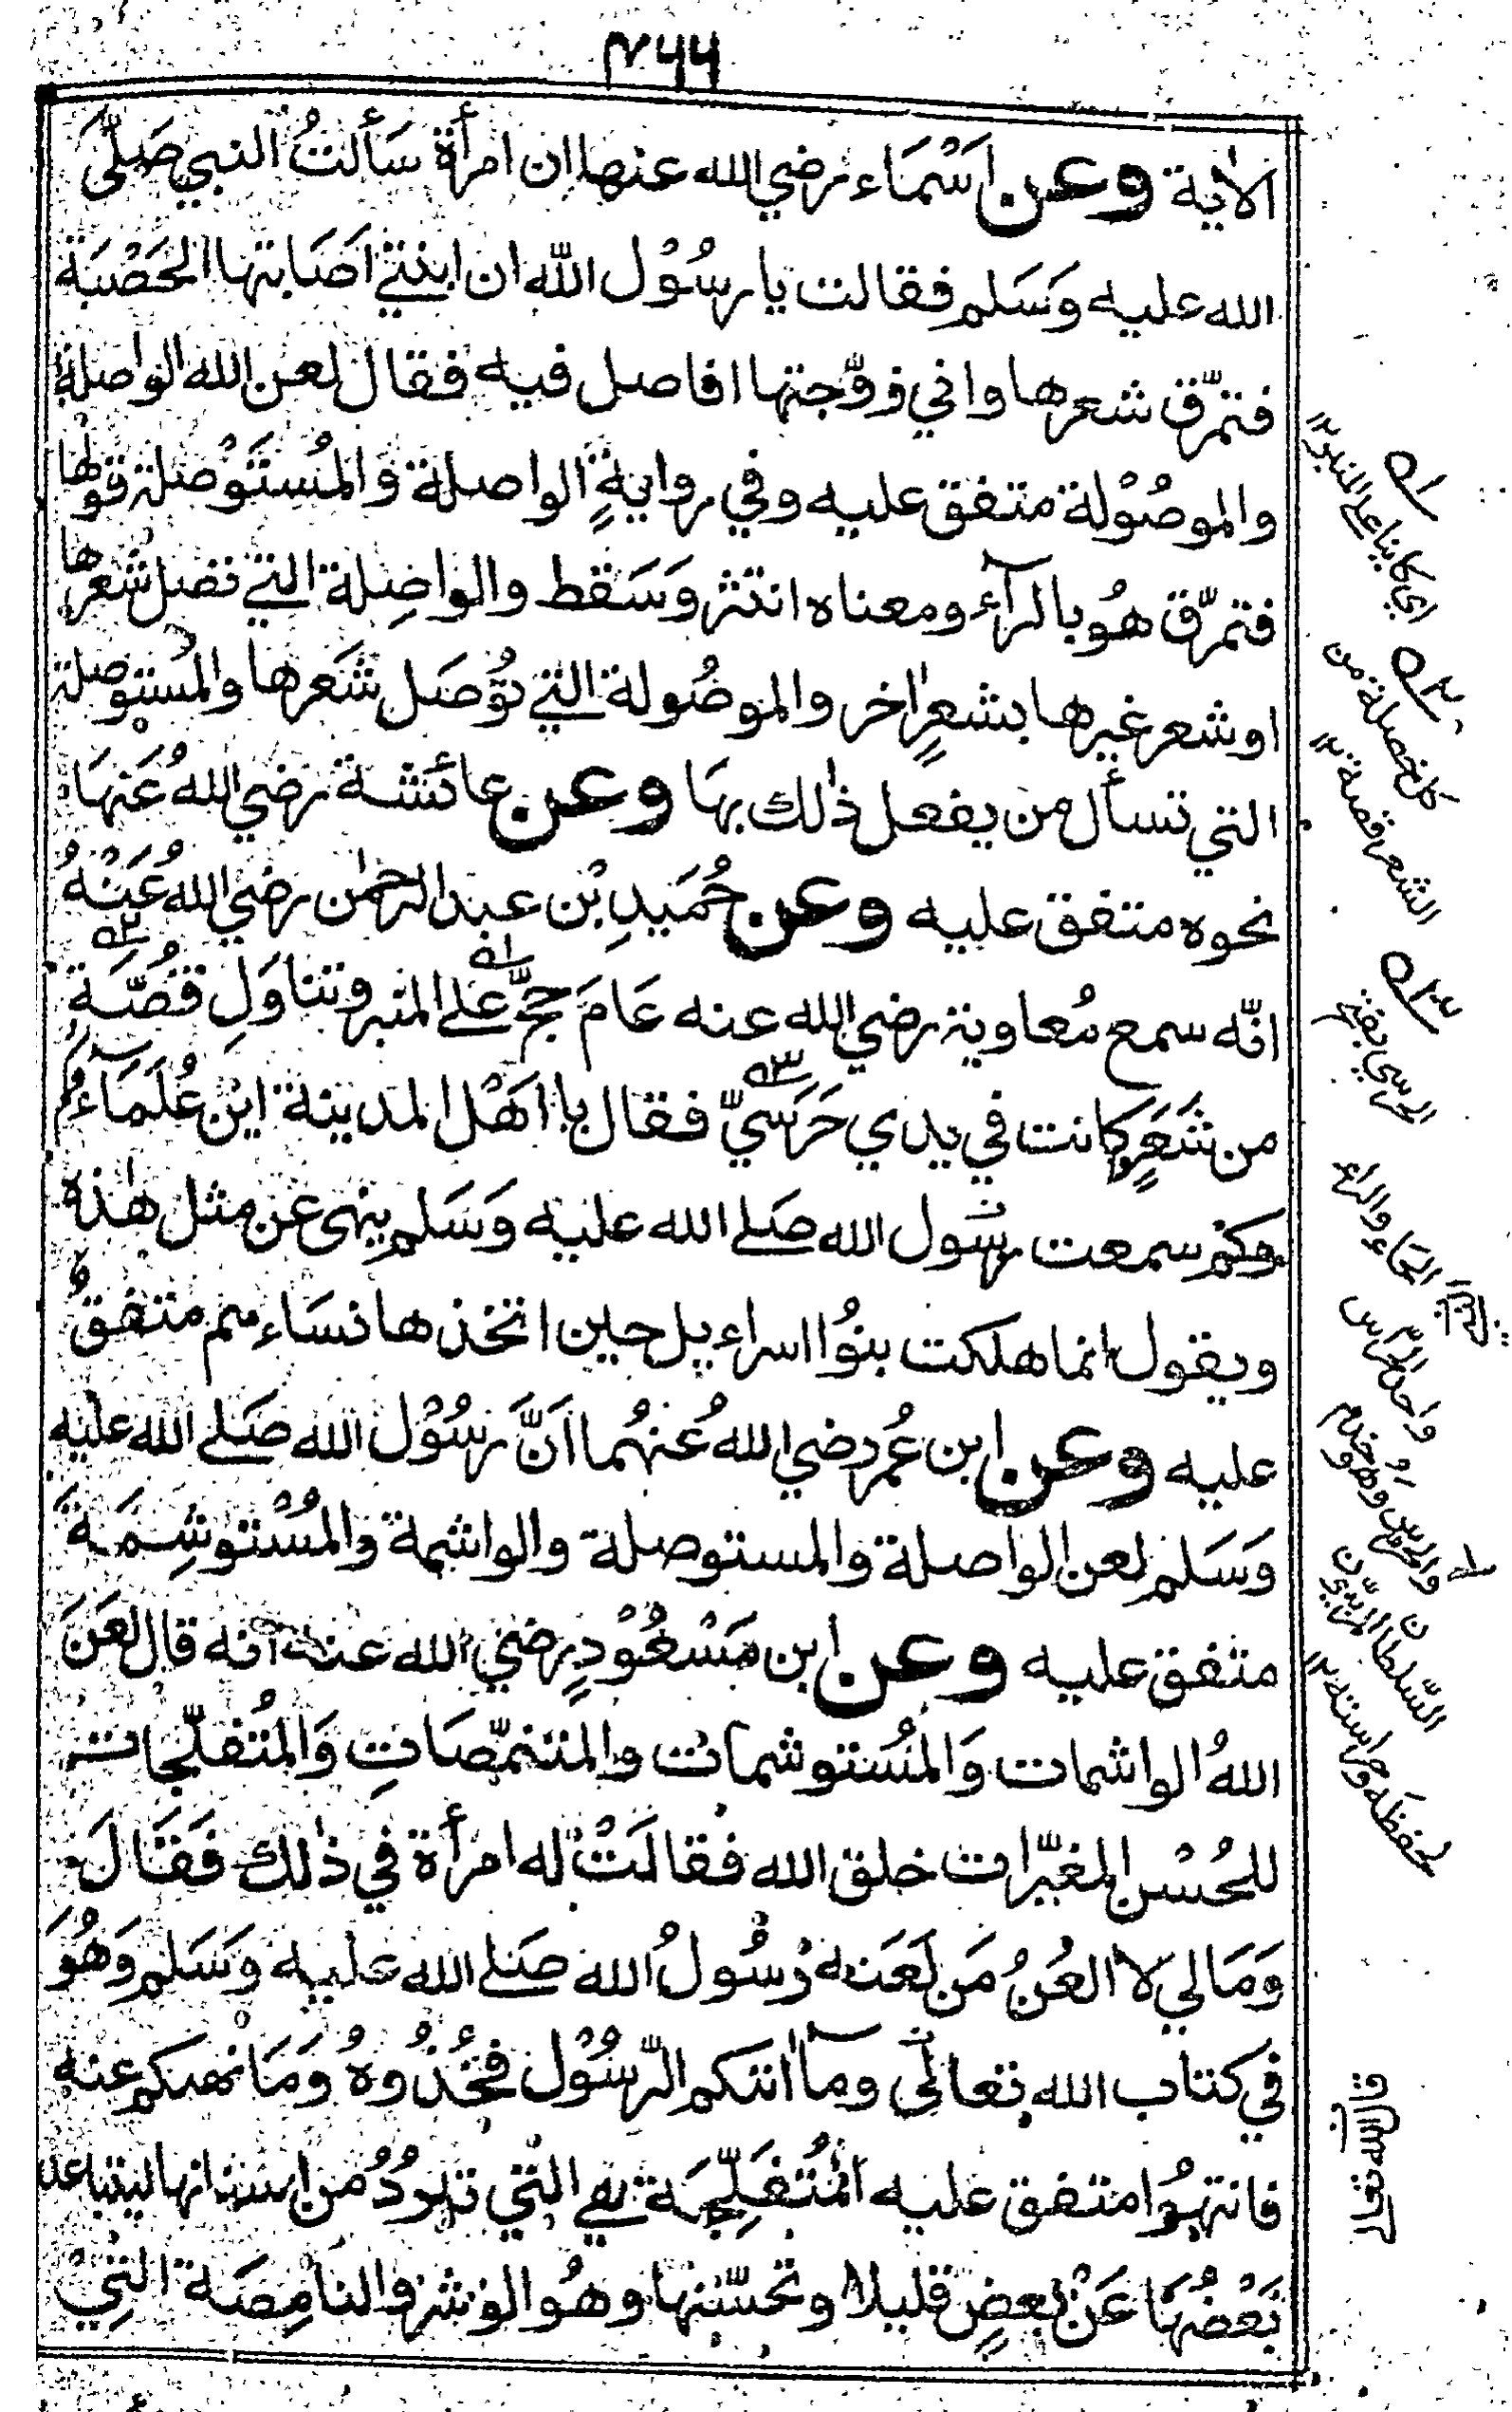 ٣٦٦
الاٰية وعن اَسْمَاء رضي الله عنها ان امرأة سَألتُ النبي صَلَّى
الله عليه وَسَلم فقالت يا رسُوْل اللّٰه ان ابنتي اَصَابتها الحَصْبَة
فتمرّق شعرها واني زوّجتها افاصل فيه فقال لعن الله الواصلة
والموصُوْلة متفق عليه وفي روايةٍ الواصلة وَالمُستَوْصلة قولها
فتمرّق هُو بالرآء ومعناه انتثر وَسَقط والواصِلة التي تصل شعرها
او شعر غيرها بشعرٍ اٰخر والموصُولة التي تُؤصَل شَعرها والمُستوصلة
التي تسأل من يفعل ذٰلك بهَا وعن عائشة رضي اللهُ عَنهَا
نحوه متفق عليه وعن حُمَيدِ بْن عبد الرحمٰن رضي الله عَنْهُ
انّه سمع مُعاوية رضي الله عنه عَامَ حجَّ علي المنبر وتناوَلِ قُصَّة
من شَعَرٍ كانت في يدي حَرَسيّ فقال يا اَهْل المدينة اين عُلَمَاءُكم
وكم سمعت رسُول الله صَلى الله عليه وَسَلم ينهى عن مثل هٰذه
ويقول انما هلكت بنوُا اسراءيل حين اتخذ هٰا نسَاءهم متفقٌ
عليه وعن ابن عُمر رضي اللهُ عَنهُما اَنَّ رسُوْل الله صَلى الله عليه
وَسَلم لعن الواصلة والمستوصلة والواشمة وَالمُسْتوشِمَة
متفق عليه وعن ابن مَسْعُوْدٍ رضي الله عنه انه قال لعَنَ
اللهُ الواشمات وَالمُستوشمات والمتنمّصَاتِ وَالمُتفلّجات
للحُسْن المغيّرات خلق الله فقالَتْ له امرأة في ذٰلك فَقَالَ
وَمَا لي لا العَنُ مَن لَعَنه رُسُولُ الله صَلى الله عليه وَسَلم وَهُوَ
في كتاب الله تعالٰى ومآ اٰتٰكم الرّسُوْل فخُذُوهُ وَمَا نهٰىكم عنه
فانتهُوْا متفق عليه المُتفَلِّجَة هي التي تبرُدُ من اسنانها ليتباعد
بَعْضُهَا عَنْ بعضٍ قليلا وتحسّنها وهُو الوَشر والنامِصَة التي
ا٥ اي كاينا على المنبر
٥٢ كل خصلة من
الشعر قصة
٥٣ الحرسي بفتح
الحاء والراء
واحد الحرس
والحراس وهو خدم
السّلطان المرتبون
لحفظه وحراسته
قال الله تعالى